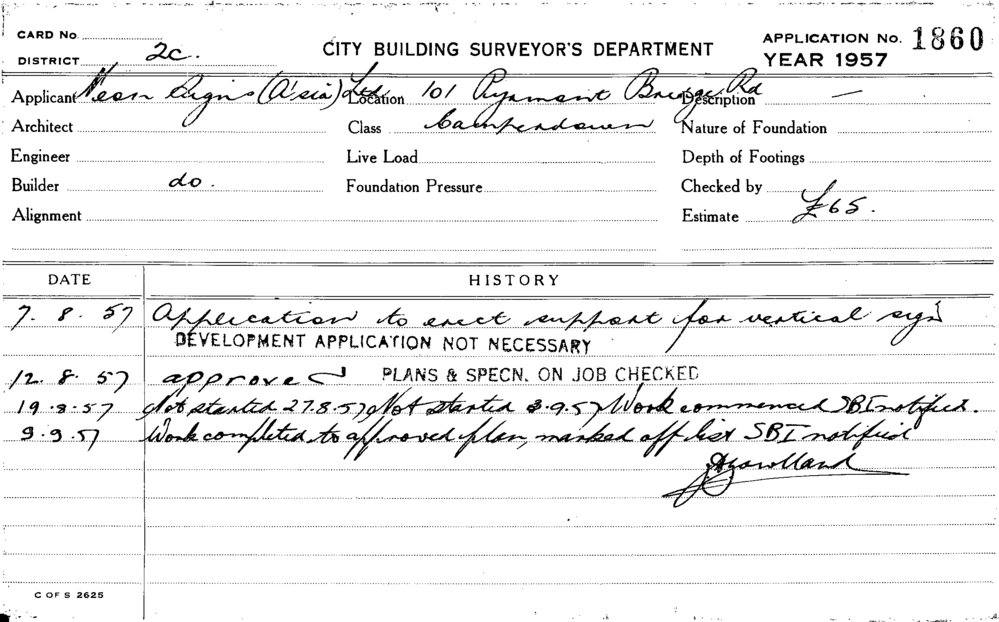 CARD No.
DISTRICT 2c.
CITY BUILDING SURVEYOR'S DEPARTMENT
APPLICATION No. 1860
YEAR 1957
Applicant Neon Signs (A'sia) Ltd Location 101 Pyrmont Bridge Rd Description —
Architect Class Camperdown Nature of Foundation
Engineer Live Load Depth of Footings
Builder do. Foundation Pressure Checked by
Alignment Estimate £65.
DATE HISTORY
7. 8. 57 Application to erect support for vertical sign
DEVELOPMENT APPLICATION NOT NECESSARY
12. 8. 57 approved PLANS & SPECN. ON JOB CHECKED
19.8.57 Not started 27.8.57 Not started 3.9.57 Work commenced SBI notified.
9.9.57 Work completed to approved plan, marked off list SBI notified
C OF S 2625